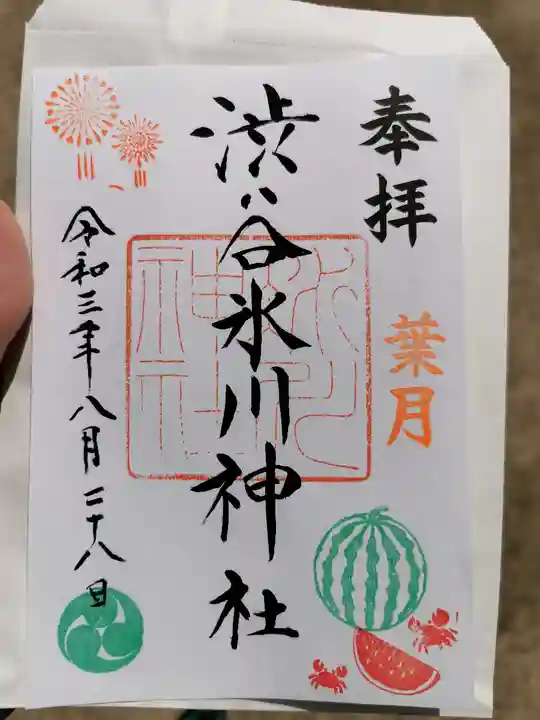 奉拝
葉月
渋谷氷川神社
氷川神社
令和三年八月二十八日